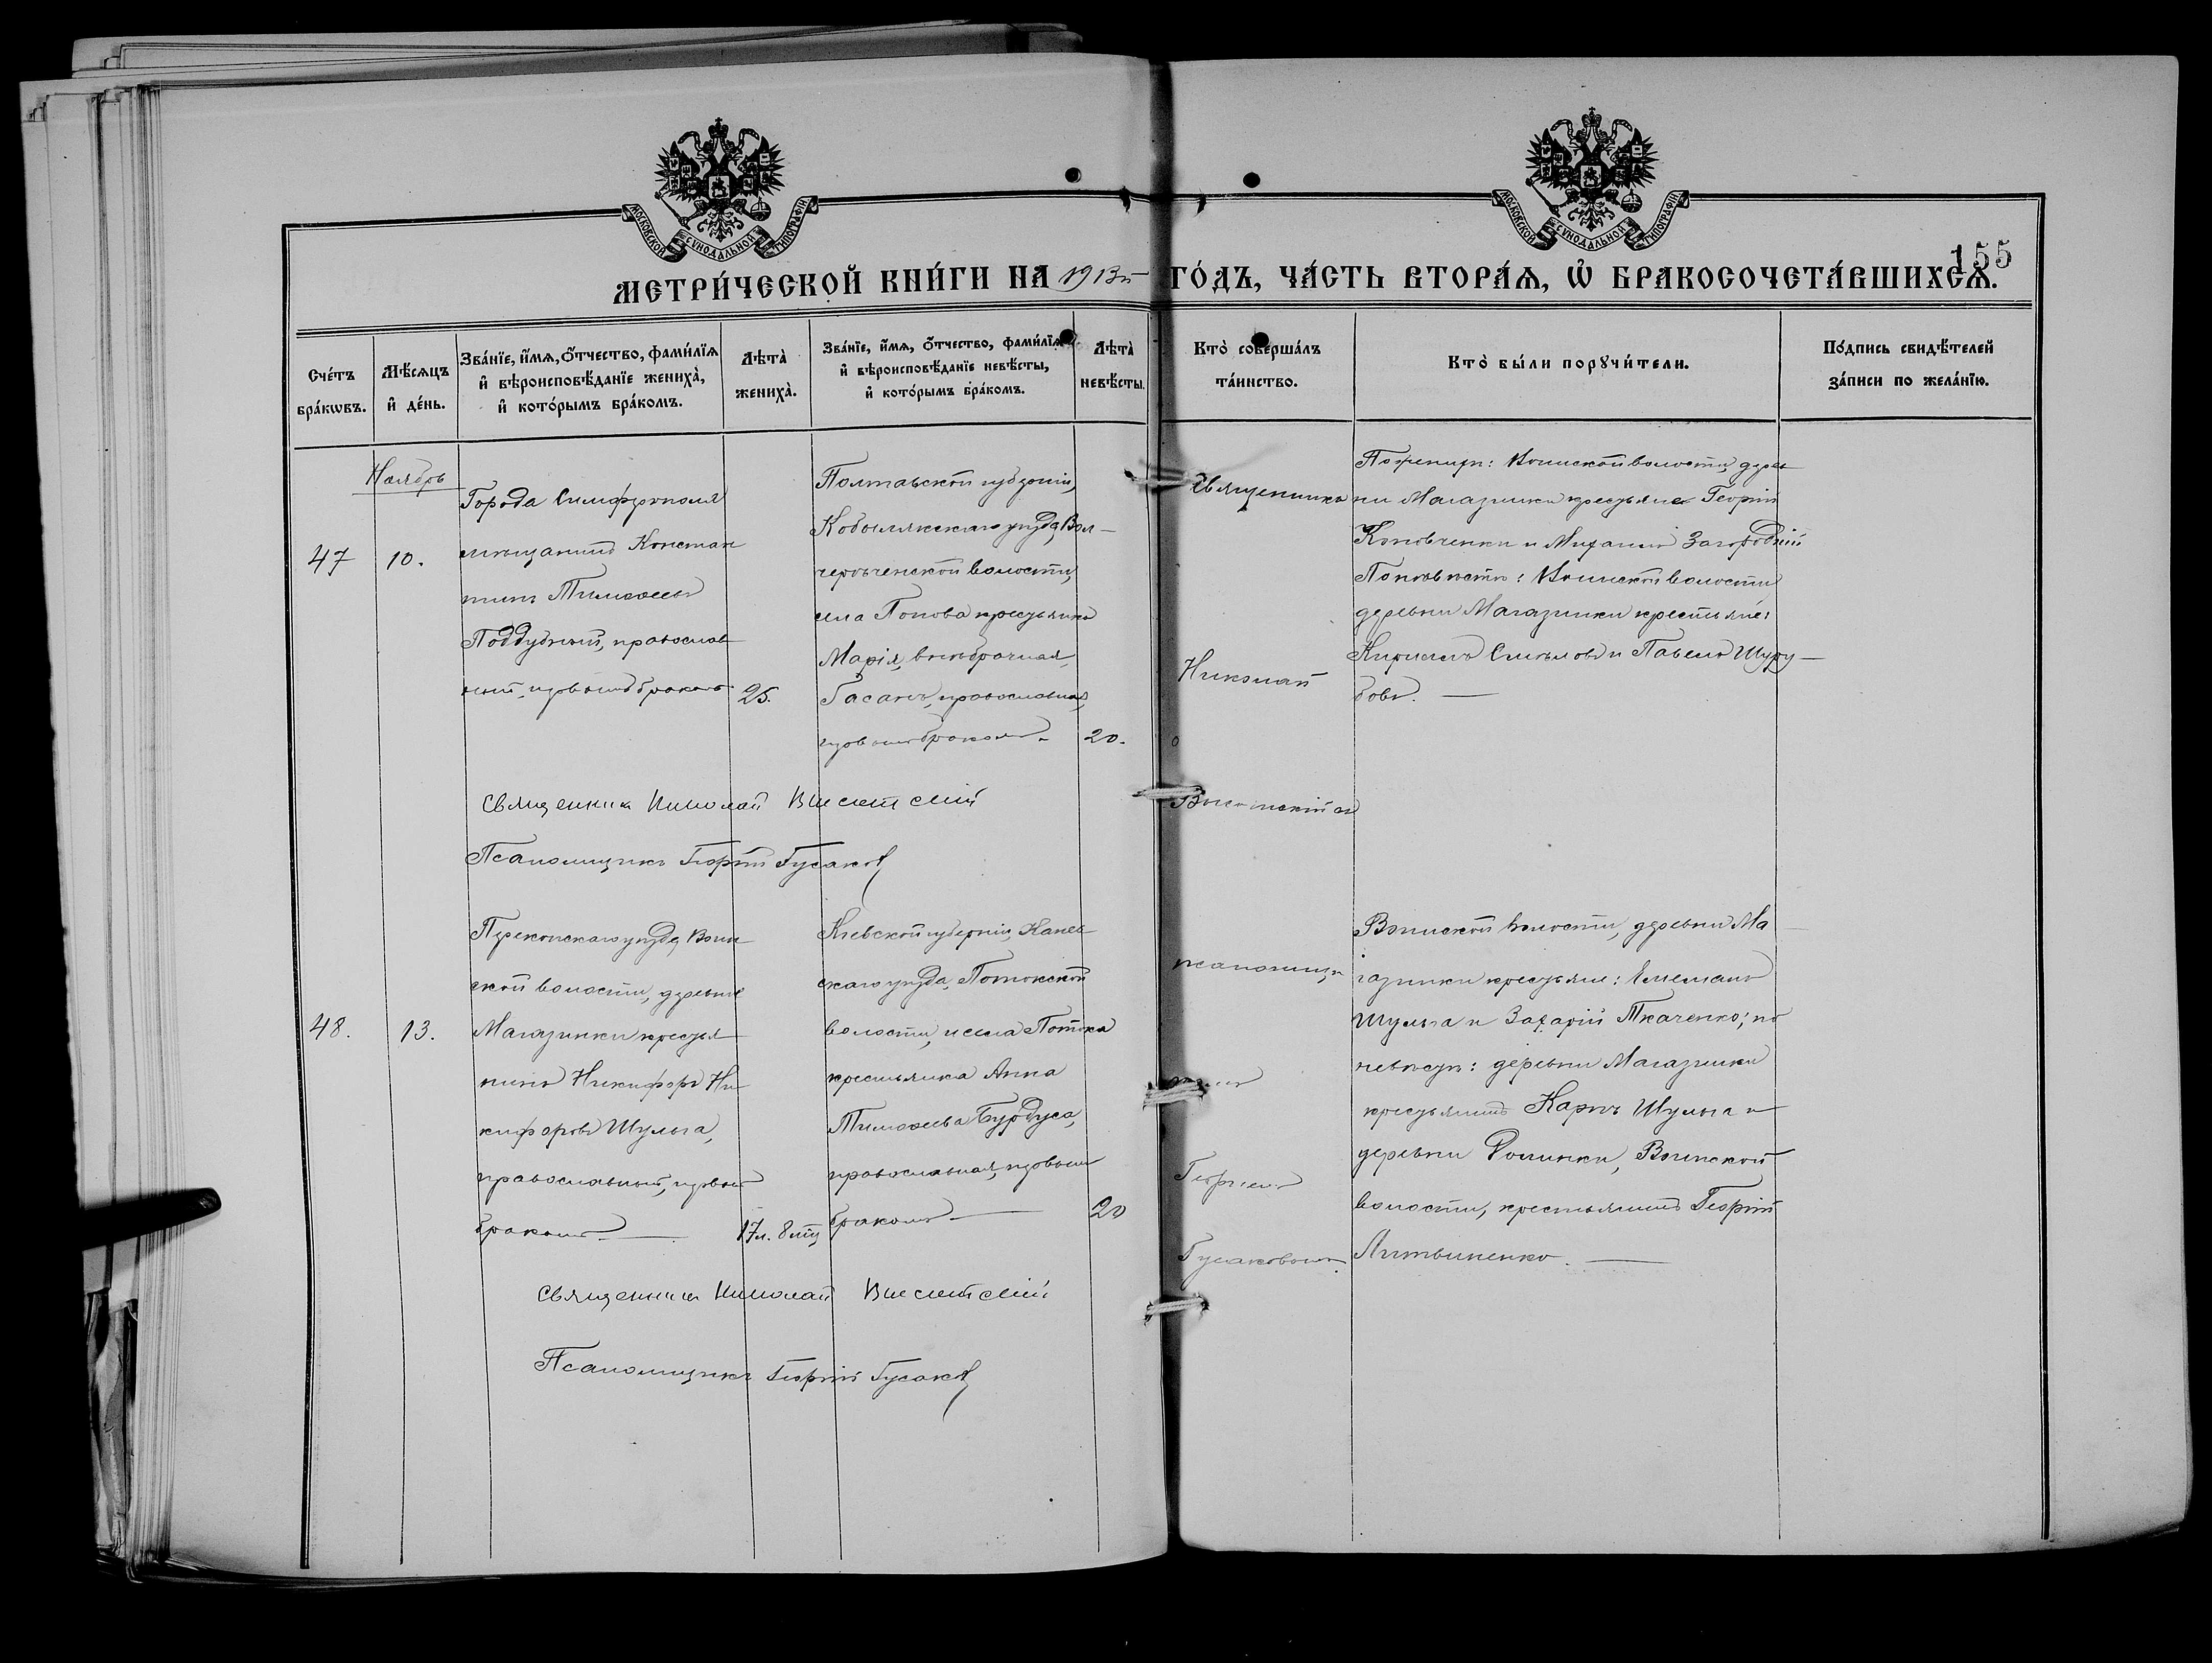 МОСКОВСКОЙ СУНОДАЛЬНОЙ ТИПОГРАФІИ
МОСКОВСКОЙ СУНОДАЛЬНОЙ ТИПОГРАФІИ
155
МЕТРИ́ЧЕСКОЙ КНИ́ГИ НА 1913й ГО́ДЪ, ЧА́СТЬ ВТОРА́Я, Ѡ҆ БРАКОСОЧЕТА́ВШИХСѦ.
Сче́тъ бра́кѡвъ.
Мѣ́сяцъ и҆ де́нь.
Зва́нїе, и҆́мѧ, ѻ҆́тчество, фами́лїѧ и҆ вѣроисповѣ́данїе жениха̀, и҆ кото́рымъ бра́комъ.
Лѣта̀ жениха̀.
Зва́нїе, и҆́мѧ, ѻ҆́тчество, фами́лїѧ и҆ вѣроисповѣ́данїе невѣ́сты, и҆ кото́рымъ бра́комъ.
Лѣта̀ невѣ́сты.
Кто̀ соверша́лъ та́инство.
Кто̀ бы́ли порꙋчи́тели.
По́дпись свидѣ́телей за́писи по жела́нїю.
Ноябрь
47
10.
Города Симферополя
мѣщанинъ Констан
тинъ Тимоѳеевъ
Поддубный, православ
ный, первымъ бракомъ
25.
Полтавской губерніи,
Кобылякскаго уѣзда, Вол-
ческой волости,
села Попова крестьянка
Марія, внѣбрачная,
Гасанъ, православная,
первымъ бракомъ.
20.
Священникъ
Николай
Высотскій съ
По женихѣ: Воинской волости, дерев
ни Магазинки крестьяне Георгій
Коновченки и Михаилъ Загородній
По невѣстѣ: Воинской волости
деревни Магазинки крестьяне:
Кириллъ Смѣловъ и Павелъ Шуру-
бовъ.
Священникъ Николай Высотскій
Псаломщикъ Георгій Гусаковъ
48.
13.
Перекопскаго уѣзда, Воин
ской волости, деревни
Магазинки крестья
нинъ Никифоръ Ни
кифоровъ Шульга,
православный, первымъ
бракомъ
17л. 8мц
Кіевской губерніи, Канев
скаго уѣзда, Потокской
волости, села Потока
крестьянка Анна
Тимоѳеева Бурдуса,
православная, первымъ
бракомъ
20
псаломщи
Георгіемъ
Гусаковымъ.
Воинской волости, деревни Ма
газинки крестьяне: Емеліанъ
Шульга и Захарій Ткаченко; по
невѣстѣ: деревни Магазинки
крестьянинъ Карпъ Шульга и
деревни Долинки, Воинской
волости, крестьянинъ Георгій
Литвиненко.
Священникъ Николай Высотскій
Псаломщикъ Георгій Гусаковъ